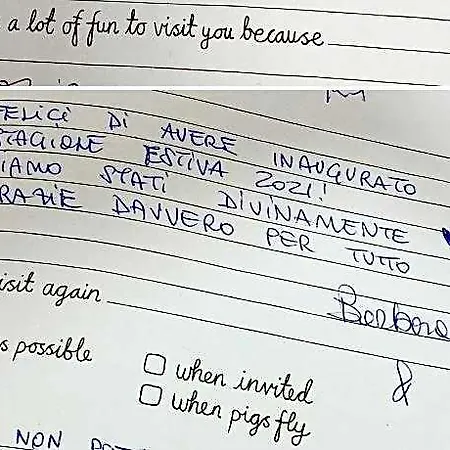 a lot of fun to visit you because
FELICI DI AVERE INAUGURATO
STAGIONE ESTIVA 2021!
SIAMO STATI DIVINAMENTE
GRAZIE DAVVERO PER TUTTO
isit again
Barbara
&
s possible
when invited
when pigs fly
NON